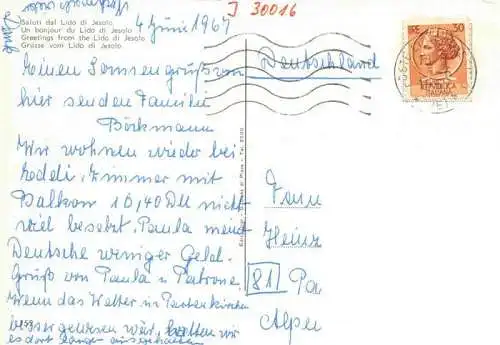 J 30016
4 Juni 1967
Saluti dal Lido di Jesolo
Un bonjour du Lido di Jesolo
Greetings from the Lido di Jesolo
Grüsse vom Lido di Jesolo
30
REPVBBLICA
ITALIANA
Deutschland
Einen Sonnengruß von
hier senden Familien
Börkmann
Wir wohnen wieder bei
Zimmer mit
Balkon 10,40 DM nicht
viel besetzt. Paula meint
Deutsche weniger Geld.
Gruß von Paula u. Patrone.
Wenn das Wetter in Partenkirchen
besser gewesen wär, hätten wir
es dort länger ausgehalten
Fam
Heinz
81 Pa
Alpen